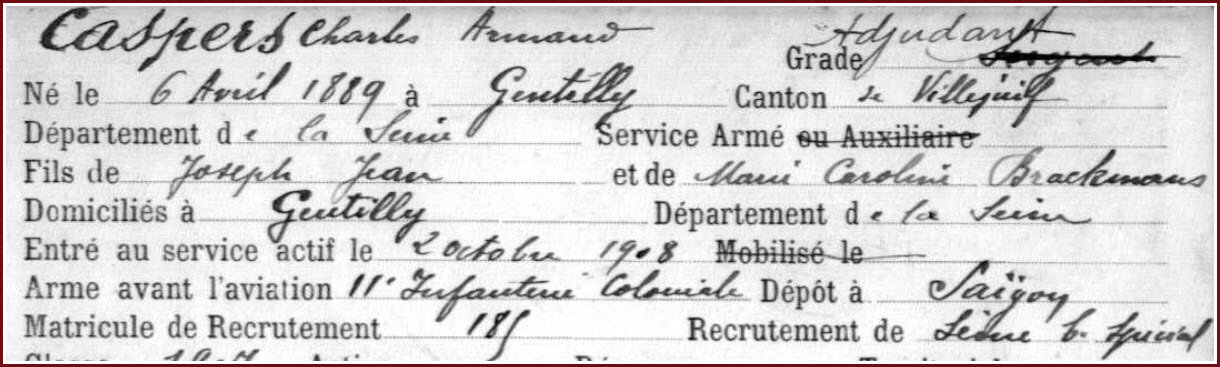 Caspers Charles Armand Grade Adjudant Sergent
Né le 6 Avril 1889 à Gentilly Canton de Villejuif
Département de la Seine Service Armé ou Auxiliaire
Fils de Joseph Jean et de Marie Caroline Brackmans
Domiciliés à Gentilly Département de la Seine
Entré au service actif le 2 octobre 1908 Mobilisé le
Arme avant l'aviation 11e Infanterie Coloniale Dépôt à Saïgon
Matricule de Recrutement 185 Recrutement de Seine b. Spécial